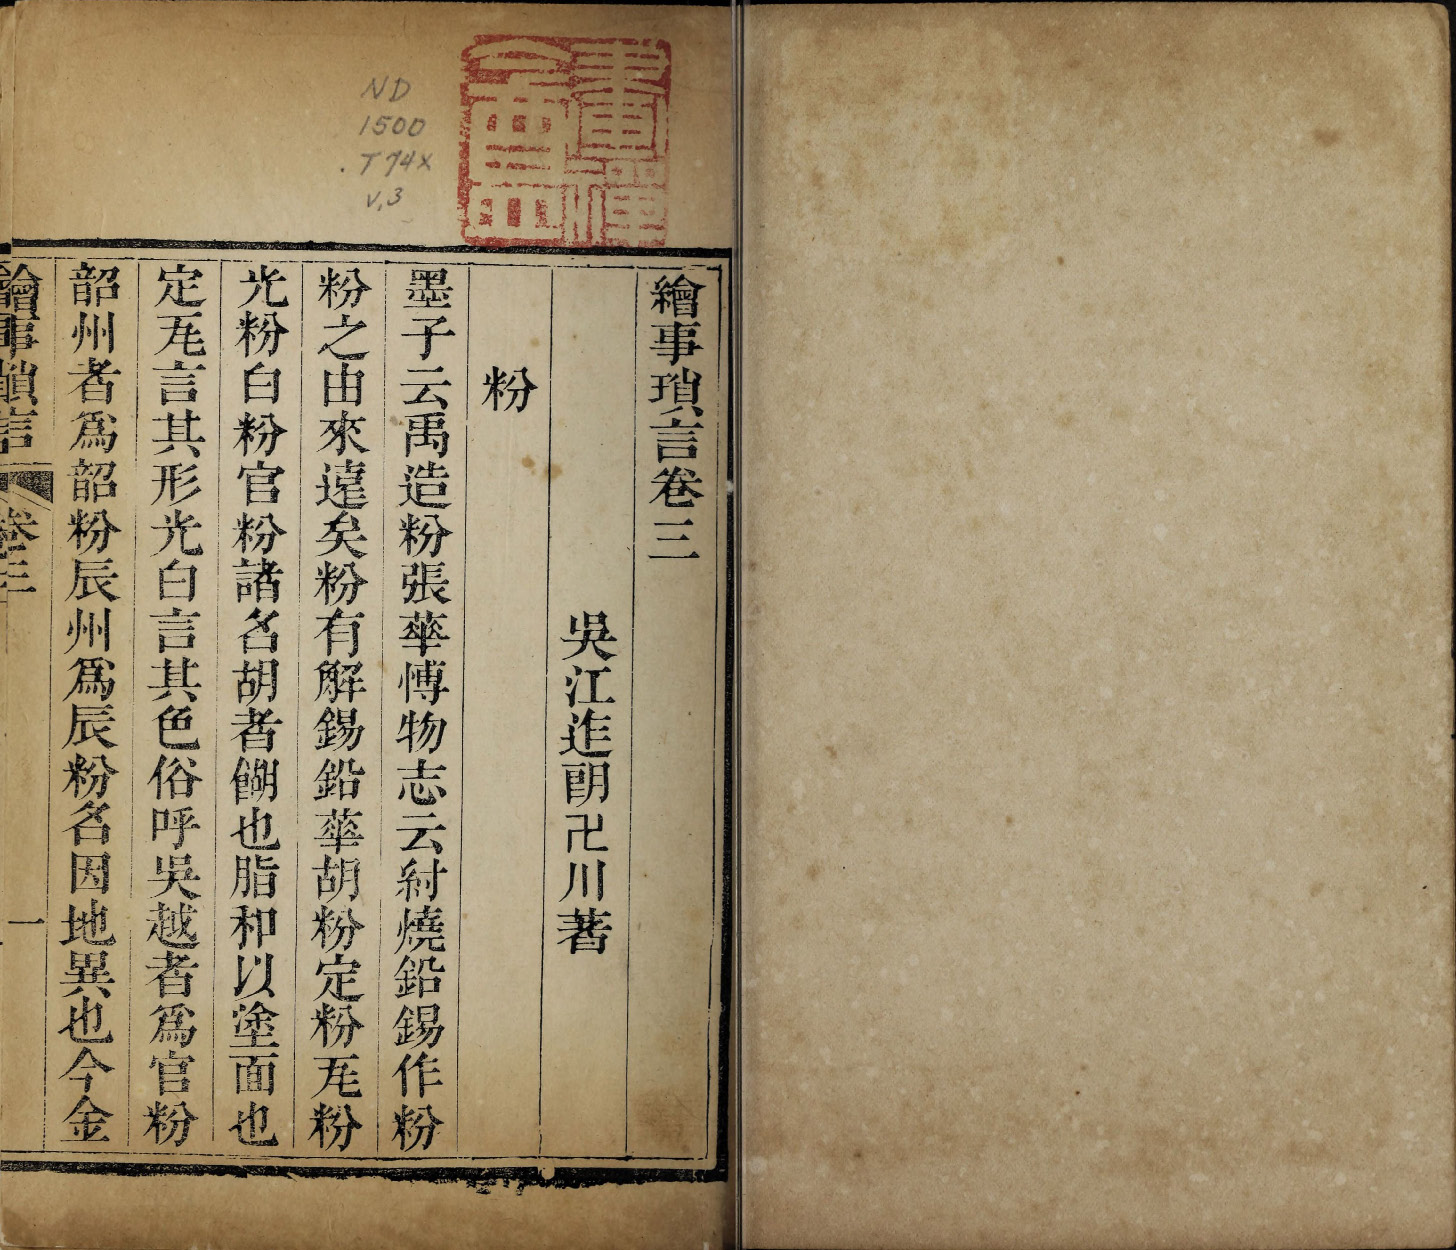 繪事瑣言卷三
吳江迮朗卍川著
粉
墨子云禹造粉張華愽物志云紂燒鉛錫作粉
粉之由來遠矣粉有解錫鉛華胡粉定粉瓦粉
光粉白粉官粉諸名胡者餬也脂和以塗面也
定瓦言其形光白言其色俗呼吳越者爲官粉
韶州者爲韶粉辰州爲辰粉名因地異也今金
繪事瑣言
卷三
一
ND
1500
T74x
v.3